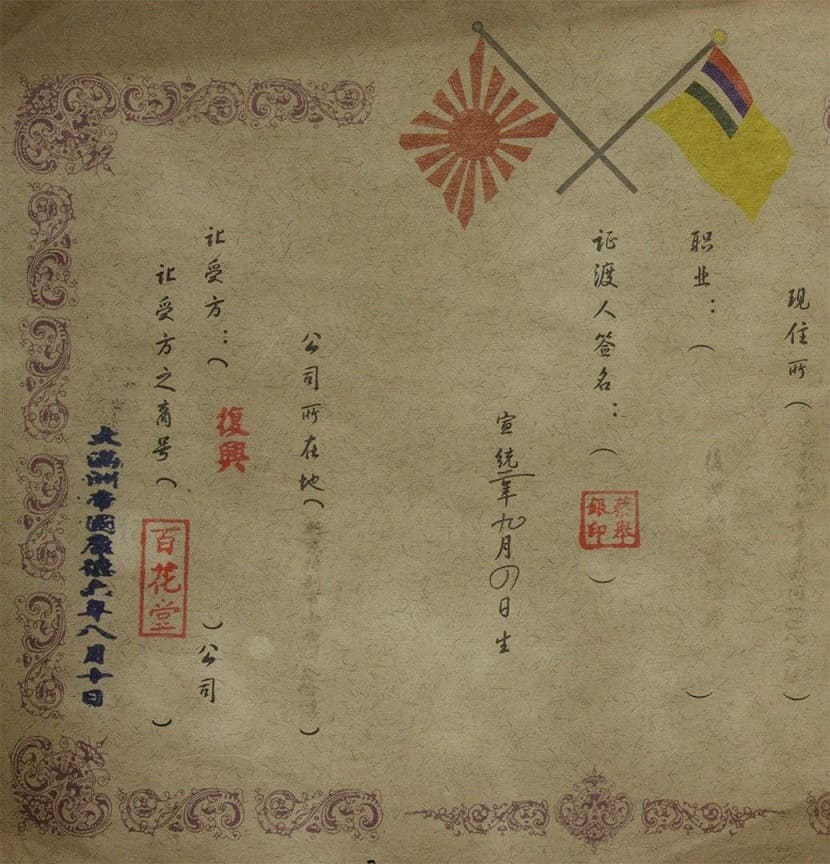 现住所（）
职业：（）
证渡人签名：（蔡舉銀印）
宣統二年九月日生
公司所在地（）
让受方：（復興）公司
让受方之商号（百花堂）
大滿洲帝國康德六年八月十日